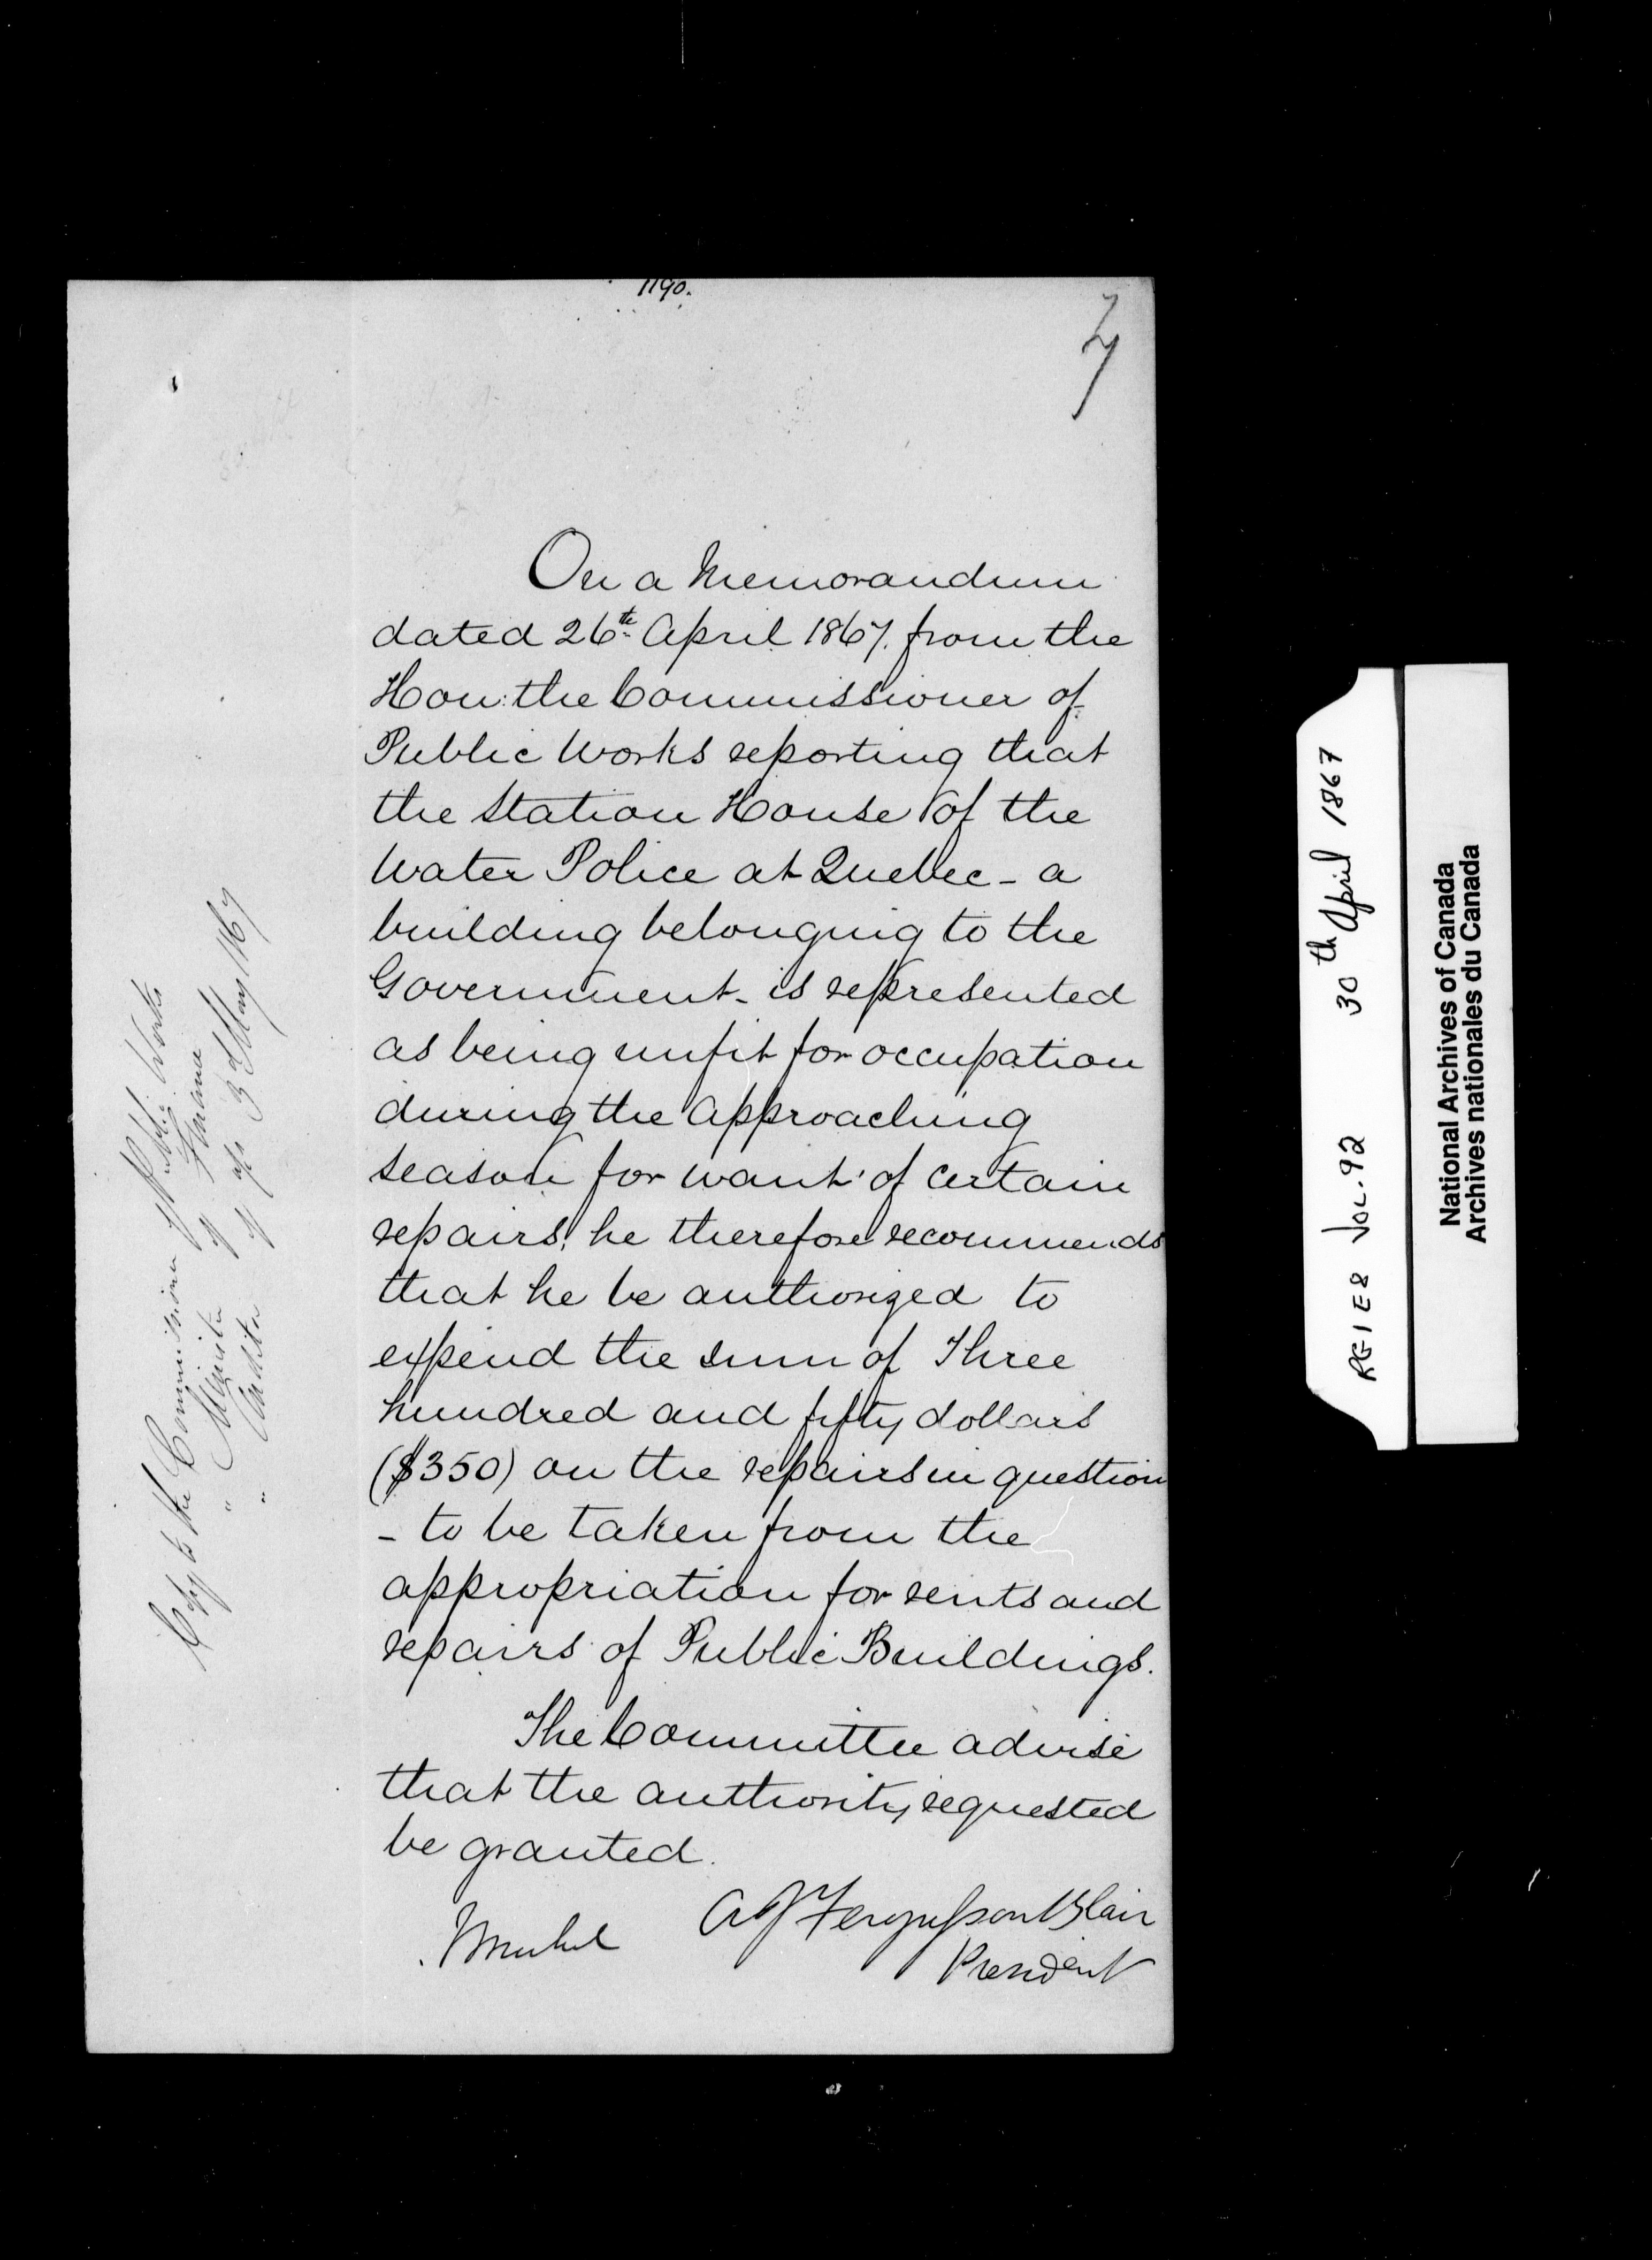 1190.
7
On a Memorandum
dated 26th April 1867. from the
Hon: the Commissioner of
Public Works reporting that
the Station House of the
Water Police at Quebec - a
building belonging to the
Government - is represented
as being unfit for occupation
during the approaching
season for want of certain
repairs, he therefore recommends
that he be authorized to
expend the sum of Three
hundred and fifty dollars
($350) on the repairs in question
- to be taken from the
appropriation for rents and
repairs of Public Buildings.
The Committee advise
that the authority requested
be granted.
AJ Fergusson Blair
President
Copy to the Commissioner of Public Works
" Minister of Finance
" Auditor 3d May 1867
RG1E8 VOL.92 30th April 1867
National Archives of Canada
Archives nationales du Canada